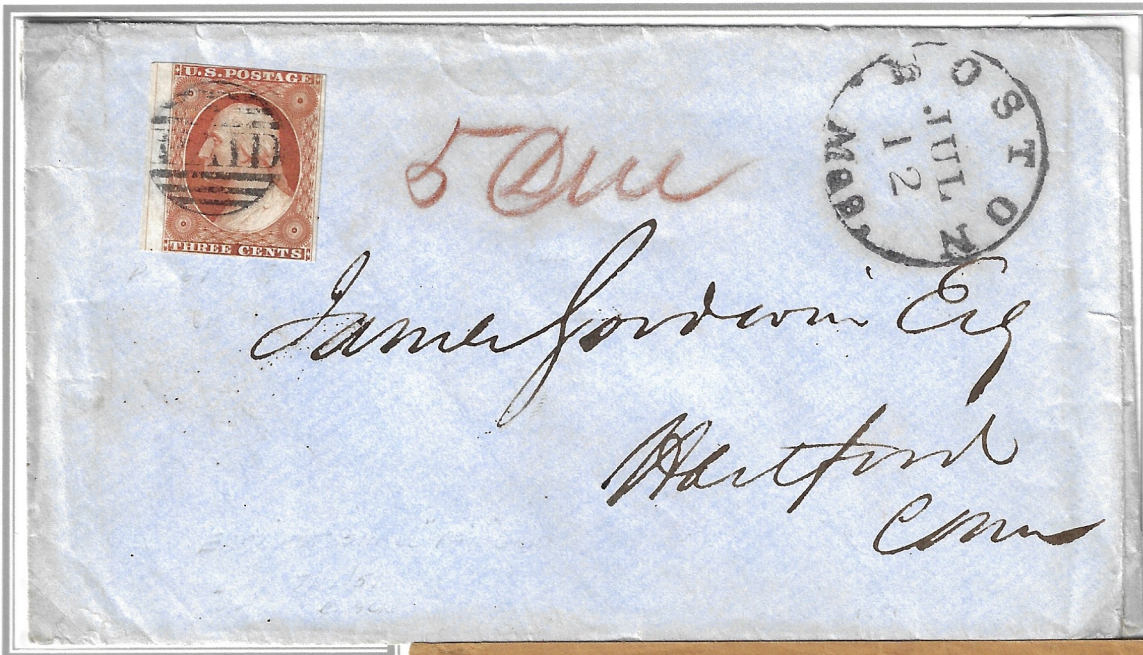 U.S. POSTAGE
PAID
THREE CENTS
5 Due
BOSTON
JUL
12
Mass.
James Goodwin Esq
Hartford
Conn